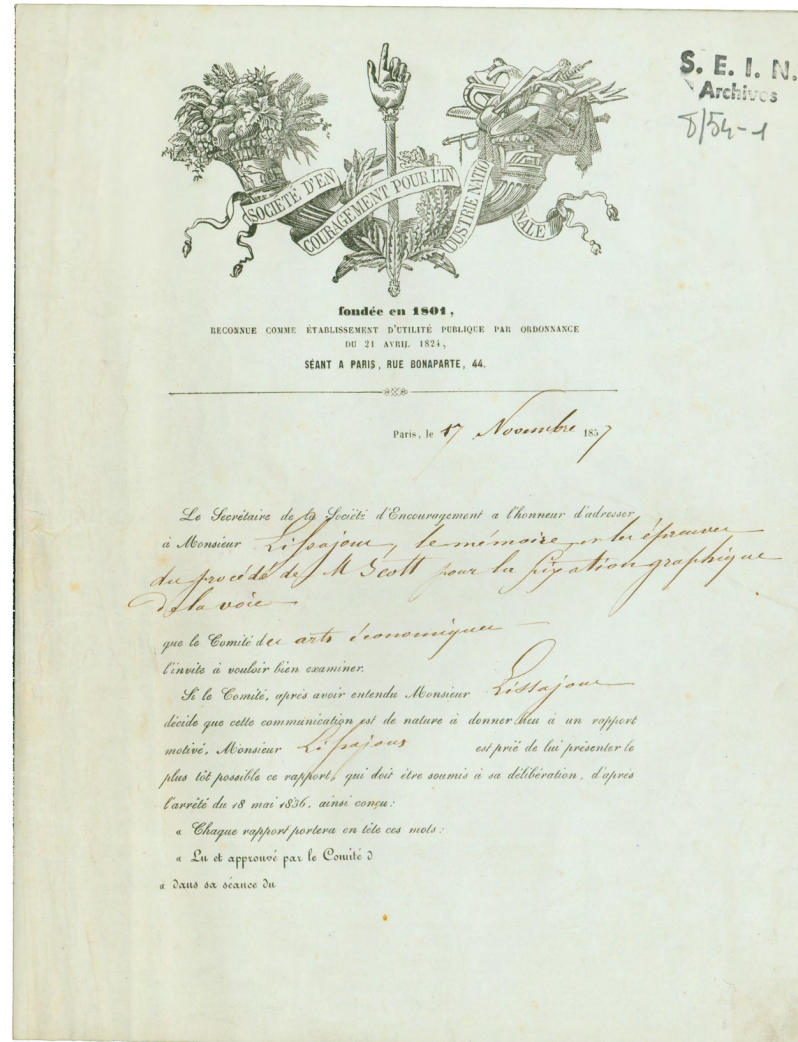 S. E. I. N.
Archives
8/54-1
SOCIÉTÉ D'EN
COURAGEMENT POUR L'IN
DUSTRIE NATIO
NALE
fondée en 1801,
RECONNUE COMME ÉTABLISSEMENT D'UTILITÉ PUBLIQUE PAR ORDONNANCE
DU 21 AVRIL 1824,
SÉANT A PARIS, RUE BONAPARTE, 44.
Paris, le 17 Novembre 1857
Le Secrétaire de la Société d'Encouragement a l'honneur d'adresser
à Monsieur Lissajous, le mémoire et les épreuves
du procédé de M Scott pour la fixation graphique
de la voie
que le Comité des arts économiques
l'invite à vouloir bien examiner.
Si le Comité, après avoir entendu Monsieur Lissajous
décide que cette communication est de nature à donner lieu à un rapport
motivé, Monsieur Lissajous est prié de lui présenter le
plus tôt possible ce rapport, qui doit être soumis à sa délibération, d'après
l'arrêté du 18 mai 1836, ainsi conçu :
« Chaque rapport portera en tête ces mots :
« Lu et approuvé par le Comité d
« dans sa séance du